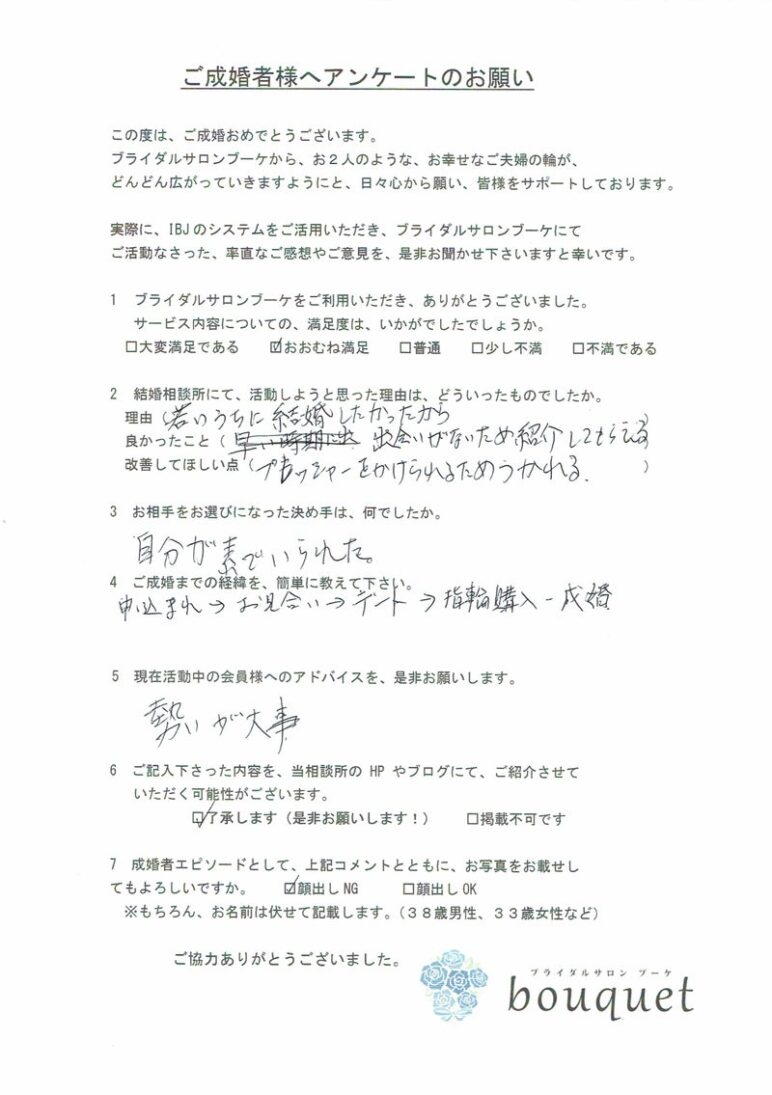 ご成婚者様へアンケートのお願い
この度は、ご成婚おめでとうございます。
ブライダルサロンブーケから、お２人のような、お幸せなご夫婦の輪が、
どんどん広がっていきますようにと、日々心から願い、皆様をサポートしております。
実際に、IBJのシステムをご活用いただき、ブライダルサロンブーケにて
ご活動なさった、率直なご感想やご意見を、是非お聞かせ下さいますと幸いです。
1 ブライダルサロンブーケをご利用いただき、ありがとうございました。
サービス内容についての、満足度は、いかがでしたでしょうか。
□大変満足である ☑おおむね満足 □普通 □少し不満 □不満である
2 結婚相談所にて、活動しようと思った理由は、どういったものでしたか。
理由（若いうちに結婚したかったから）
良かったこと（早い時期に出 出会いがないため紹介してもらえる
改善してほしい点（プレッシャーをかけられるためうかれる.）
3 お相手をお選びになった決め手は、何でしたか。
自分が素でいられた。
4 ご成婚までの経緯を、簡単に教えて下さい。
申込まれ→お見合い→デート→指輪購入-成婚
5 現在活動中の会員様へのアドバイスを、是非お願いします。
勢いが大事
6 ご記入下さった内容を、当相談所の HP やブログにて、ご紹介させて
いただく可能性がございます。
☑了承します（是非お願いします！） □掲載不可です
7 成婚者エピソードとして、上記コメントとともに、お写真をお載せし
てもよろしいですか。 ☑顔出し NG □顔出し OK
※もちろん、お名前は伏せて記載します。（３８歳男性、３３歳女性など）
ご協力ありがとうございました。
ブライダルサロン ブーケ
bouquet